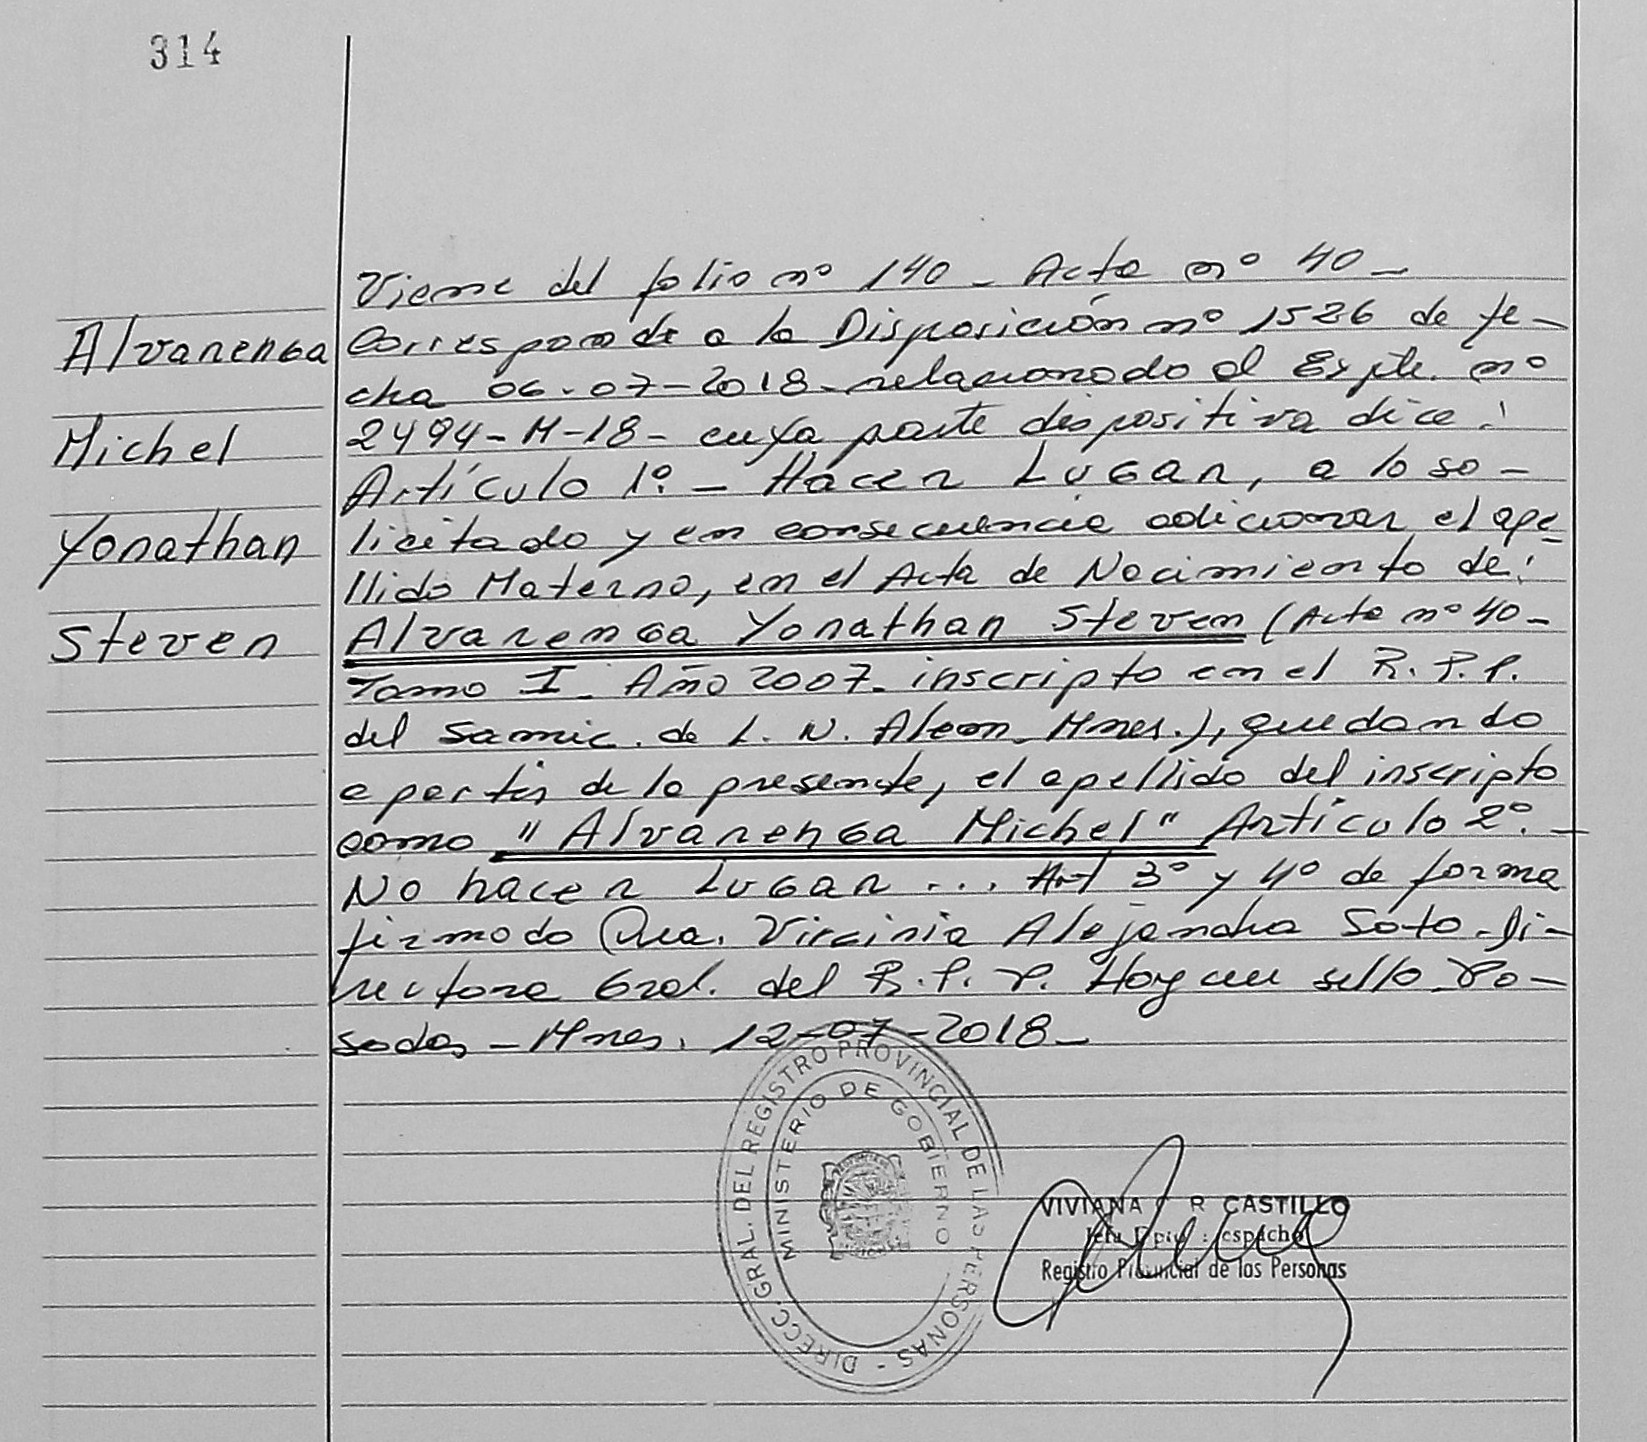 314
Alvarenga
Michel
Yonathan
Steven
Viene del folio nº 140 - Acta nº 40 -
Corresponde a la Disposición nº 1526 de fe-
cha 06-07-2018- relacionado al Expte. nº
2494-M-18- cuya parte dispositiva dice:
Artículo 1º. - Hacer Lugar, a lo so-
licitado y en consecuencia adicionar el ape-
llido Materno, en el Acta de Nacimiento de:
Alvarenga Yonathan Steven (Acta nº 40-
Tomo I - Año 2007- inscripto en el R. P. P.
del Samic. de L. N. Alem - Mnes.), quedando
a partir de la presente, el apellido del inscripto
como "Alvarenga Michel" Artículo 2º. -
No hacer Lugar ... Art 3º y 4º de forma
firmado Dra. Virginia Alejandra Soto - Di-
rectora Gral. del R. P. P. Hay un sello Po-
sadas - Mnes. 12-07-2018-
DIRECC. GRAL. DEL REGISTRO PROVINCIAL DE LAS PERSONAS -
MINISTERIO DE GOBIERNO
VIVIANA R CASTILLO
Jefa Dpto espacho
Registro Provincial de las Personas